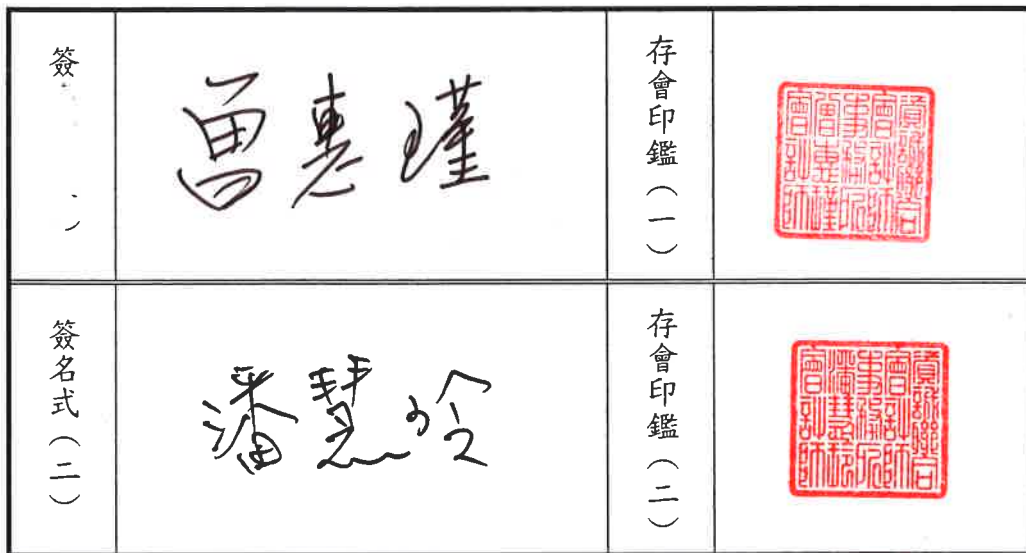 簽
曾惠瑾
存會印鑑（一）
資誠聯合
會計師
事務所
曾惠瑾
會計師
簽名式（二）
潘慧玲
存會印鑑（二）
資誠聯合
會計師
事務所
潘慧玲
會計師